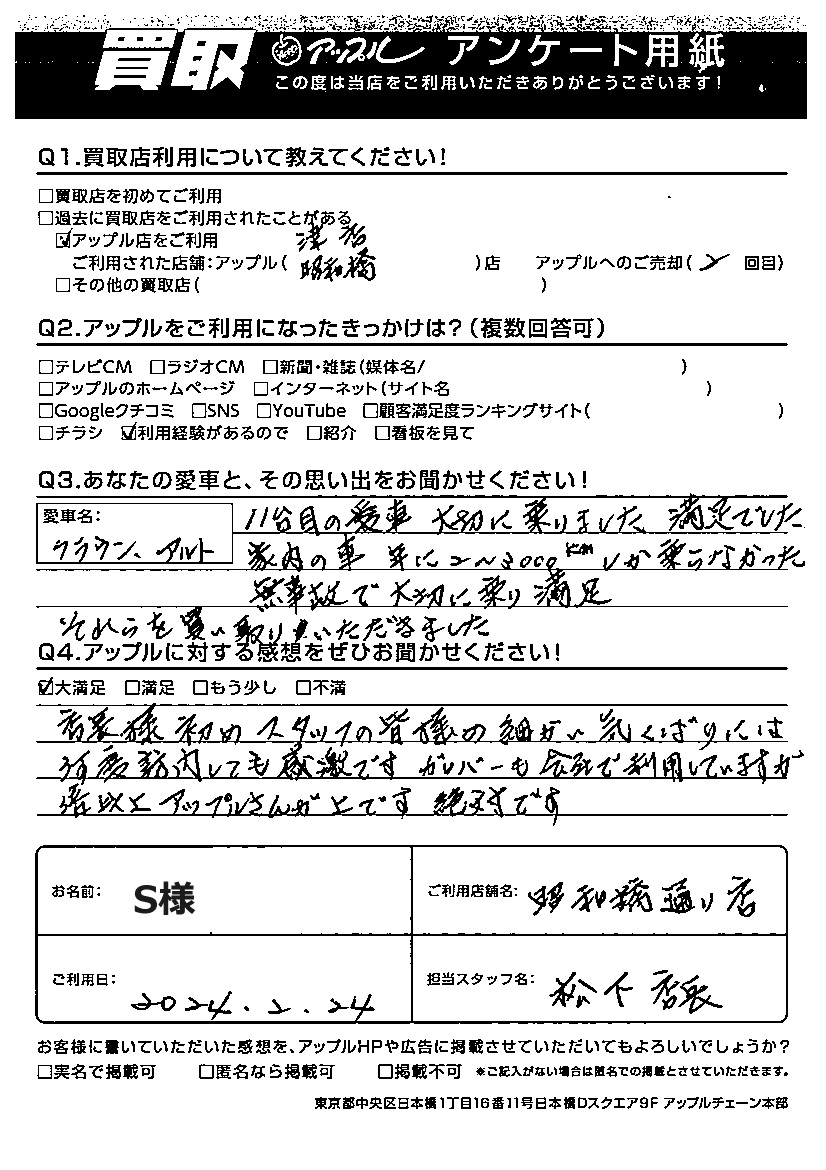 買取 アップル アンケート用紙
この度は当店をご利用いただきありがとうございます!
Q1.買取店利用について教えてください!
□買取店を初めてご利用
□過去に買取店をご利用されたことがある
☑アップル店をご利用
ご利用された店舗:アップル( 昭和橋 )店 アップルへのご売却( 2 回目)
□その他の買取店( )
Q2.アップルをご利用になったきっかけは?(複数回答可)
□テレビCM □ラジオCM □新聞・雑誌(媒体名/ )
□アップルのホームページ □インターネット(サイト名 )
□Googleクチコミ □SNS □YouTube □顧客満足度ランキングサイト( )
□チラシ ☑利用経験があるので □紹介 □看板を見て
Q3.あなたの愛車と、その思い出をお聞かせください!
愛車名:
クラウン、アルト
11台目の愛車 大切に乗りました 満足でした
家内の車 年に2~3000kmしか乗らなかった
無事故で大切に乗り満足
それらを買い取りいただきました
Q4.アップルに対する感想をぜひお聞かせください!
☑大満足 □満足 □もう少し □不満
店長様初めスタッフの皆様の細かい気くばりには
何度訪問しても感激です ガリバーも会社で利用していますが
アップルさんが上です 絶対です
お名前: S様
ご利用店舗名: 昭和橋通り店
ご利用日: 2024.2.24
担当スタッフ名: 松下店長
お客様に書いていただいた感想を、アップルHPや広告に掲載させていただいてもよろしいでしょうか?
□実名で掲載可 □匿名なら掲載可 □掲載不可 ※ご記入がない場合は匿名での掲載とさせていただきます。
東京都中央区日本橋1丁目16番11号日本橋Dスクエア9F アップルチェーン本部